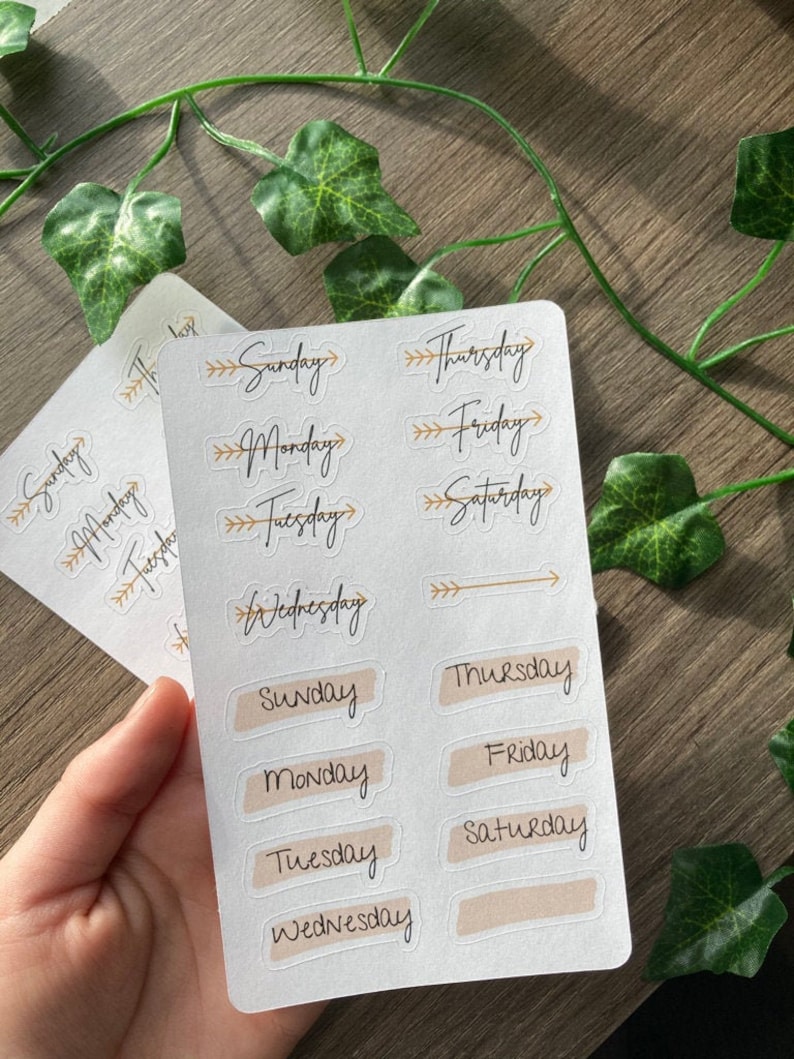 Sunday
Monday
Tuesday
Wednesday
Thursday
Friday
Saturday
Sunday
Monday
Tuesday
Wednesday
Thursday
Friday
Saturday
Sunday
Monday
Tuesday